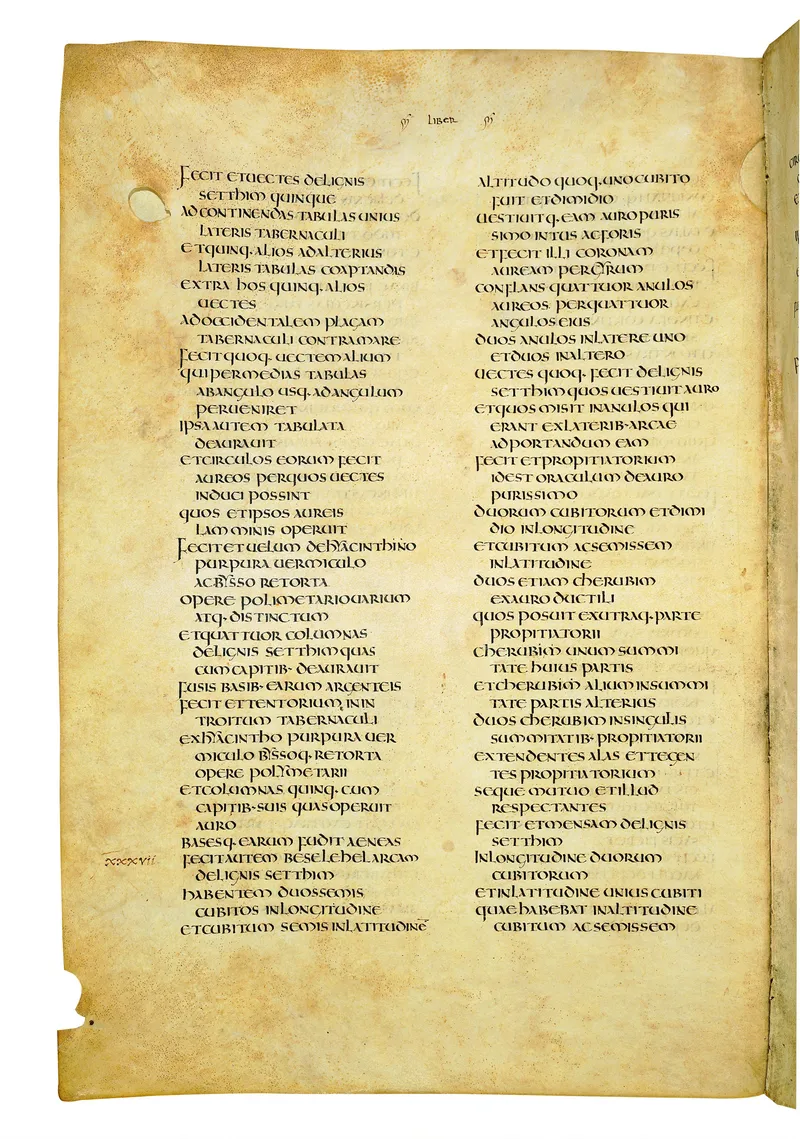 LIBER
FECIT ETUECTES DELIGNIS
SETTHIM QUINQUE
AD CONTINENDAS TABULAS UNIUS
LATERIS TABERNACULI
ETQUINQ· ALIOS ADALTERIUS
LATERIS TABULAS COAPTANDAS
EXTRA HOS QUINQ· ALIOS
UECTES
ADOCCIDENTALEM PLAGAM
TABERNACULI CONTRAMARE
FECITQUOQ· UECTEMALIUM
QUIPERMEDIAS TABULAS
ABANGULO USQ· ADANGULUM
PERUENIRET
IPSAAUTEM TABULATA
DEAURAUIT
ETCIRCULOS EORUM FECIT
AUREOS PERQUOS UECTES
INDUCI POSSINT
QUOS ETIPSOS AUREIS
LAMMINIS OPERUIT
FECITETUELUM DEHYACINTHINO
PURPURA UERMICULO
ACBYSSO RETORTA
OPERE POLIMETARIOUARIUM
ATQ· DISTINCTUM
ETQUATTUOR COLUMNAS
DELIGNIS SETTHIM QUAS
CUM CAPITIB· DEAURAUIT
FUSIS BASIB· EARUM ARGENTEIS
FECIT ETTENTORIUM, ININ
TROITUM TABERNACULI
EXHYACINTHO PURPURA UER
MICULO BYSSOQ· RETORTA
OPERE POLYMETARII
ETCOLUMNAS QUINQ· CUM
CAPITIB· SUIS QUASOPERUIT
AURO
BASESQ· EARUM FUDIT AENEAS
XXXVII FECITAUTEM BESELEHELARCAM
DELIGNIS SETTHIM
HABENTEM DUOSSEMIS
CUBITOS INLONGITUDINE
ETCUBITUM SEMIS INLATITUDINE
ALTITUDO QUOQ· UNOCUBITO
FUIT ETDIMIDIO
UESTIUITQ· EAM AUROPURIS
SIMO INTUS ACFORIS
ETFECIT ILLI CORONAM
AUREAM PERGYRUM
CONFLANS QUATTUOR ANULOS
AUREOS PERQUATTUOR
ANGULOS EIUS
DUOS ANULOS INLATERE UNO
ETDUOS INALTERO
UECTES QUOQ· FECIT DELIGNIS
SETTHIM QUOS UESTIUIT AURO
ETQUOS MISIT INANULOS QUI
ERANT EXLATERIB· ARCAE
ADPORTANDUM EAM
FECIT ETPROPITIATORIUM
IDEST ORACULUM DEAURO
PURISSIMO
DUORUM CUBITORUM ETDIMI
DIO INLONGITUDINE
ETCUBITUM ACSEMISSEM
INLATITUDINE
DUOS ETIAM CHERUBIM
EXAURO DUCTILI
QUOS POSUIT EXUTRAQ· PARTE
PROPITIATORII
CHERUBIM UNUM SUMMI
TATE HUIUS PARTIS
ETCHERUBIM ALIUM INSUMMI
TATE PARTIS ALTERIUS
DUOS CHERUBIM INSINGULIS
SUMMITATIB· PROPITIATORII
EXTENDENTES ALAS ETTEGEN
TES PROPITIATORIUM
SEQUE MUTUO ETILLUD
RESPECTANTES
FECIT ETMENSAM DELIGNIS
SETTHIM
INLONGITUDINE DUORUM
CUBITORUM
ETINLATITUDINE UNIUS CUBITI
QUAEHABEBAT INALTITUDINE
CUBITUM ACSEMISSEM